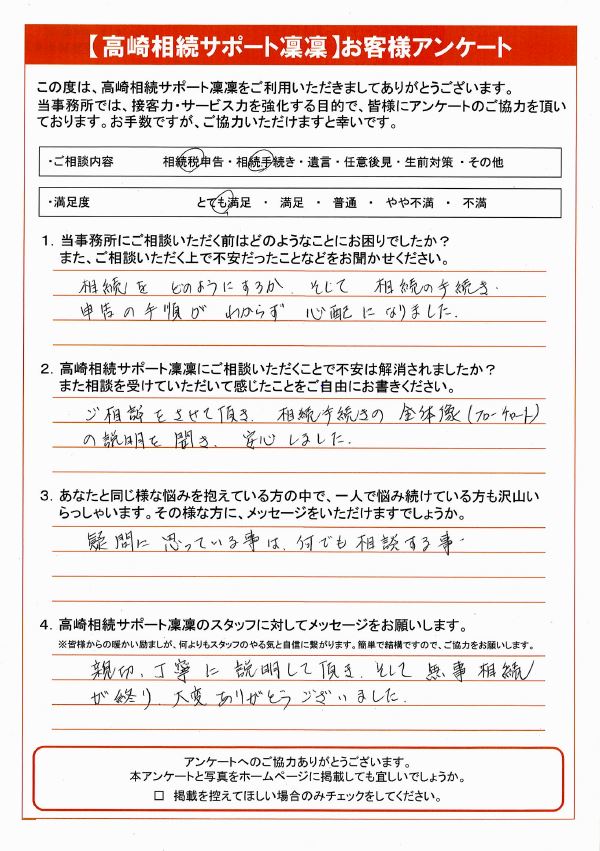 【高崎相続サポート凜凜】お客様アンケート
この度は、高崎相続サポート凜凜をご利用いただきましてありがとうございます。
当事務所では、接客力・サービス力を強化する目的で、皆様にアンケートのご協力を頂い
ております。お手数ですが、ご協力いただけますと幸いです。
・ご相談内容 相続税申告・相続手続き・遺言・任意後見・生前対策・その他
・満足度 とても満足 ・ 満足 ・ 普通 ・ やや不満 ・ 不満
1．当事務所にご相談いただく前はどのようなことにお困りでしたか？
また、ご相談いただく上で不安だったことなどをお聞かせください。
相続を どのようにするか、そして 相続の手続き・
申告の手順が わからず 心配になりました。
2．高崎相続サポート凜凜にご相談いただくことで不安は解消されましたか？
また相談を受けていただいて感じたことをご自由にお書きください。
ご相談をさせて頂き、相続手続きの全体像(フローチャート)
の説明を聞き、安心しました。
3．あなたと同じ様な悩みを抱えている方の中で、一人で悩み続けている方も沢山い
らっしゃいます。その様な方に、メッセージをいただけますでしょうか。
疑問に思っている事は、何でも相談する事・
4．高崎相続サポート凜凜のスタッフに対してメッセージをお願いします。
※皆様からの暖かい励ましが、何よりもスタッフのやる気と自信に繋がります。簡単で結構ですので、ご協力をお願いします。
親切、丁寧に説明して頂き、そして無事相続
が終り、大変ありがとうございました。
アンケートへのご協力ありがとうございます。
本アンケートと写真をホームページに掲載しても宜しいでしょうか。
□ 掲載を控えてほしい場合のみチェックをしてください。